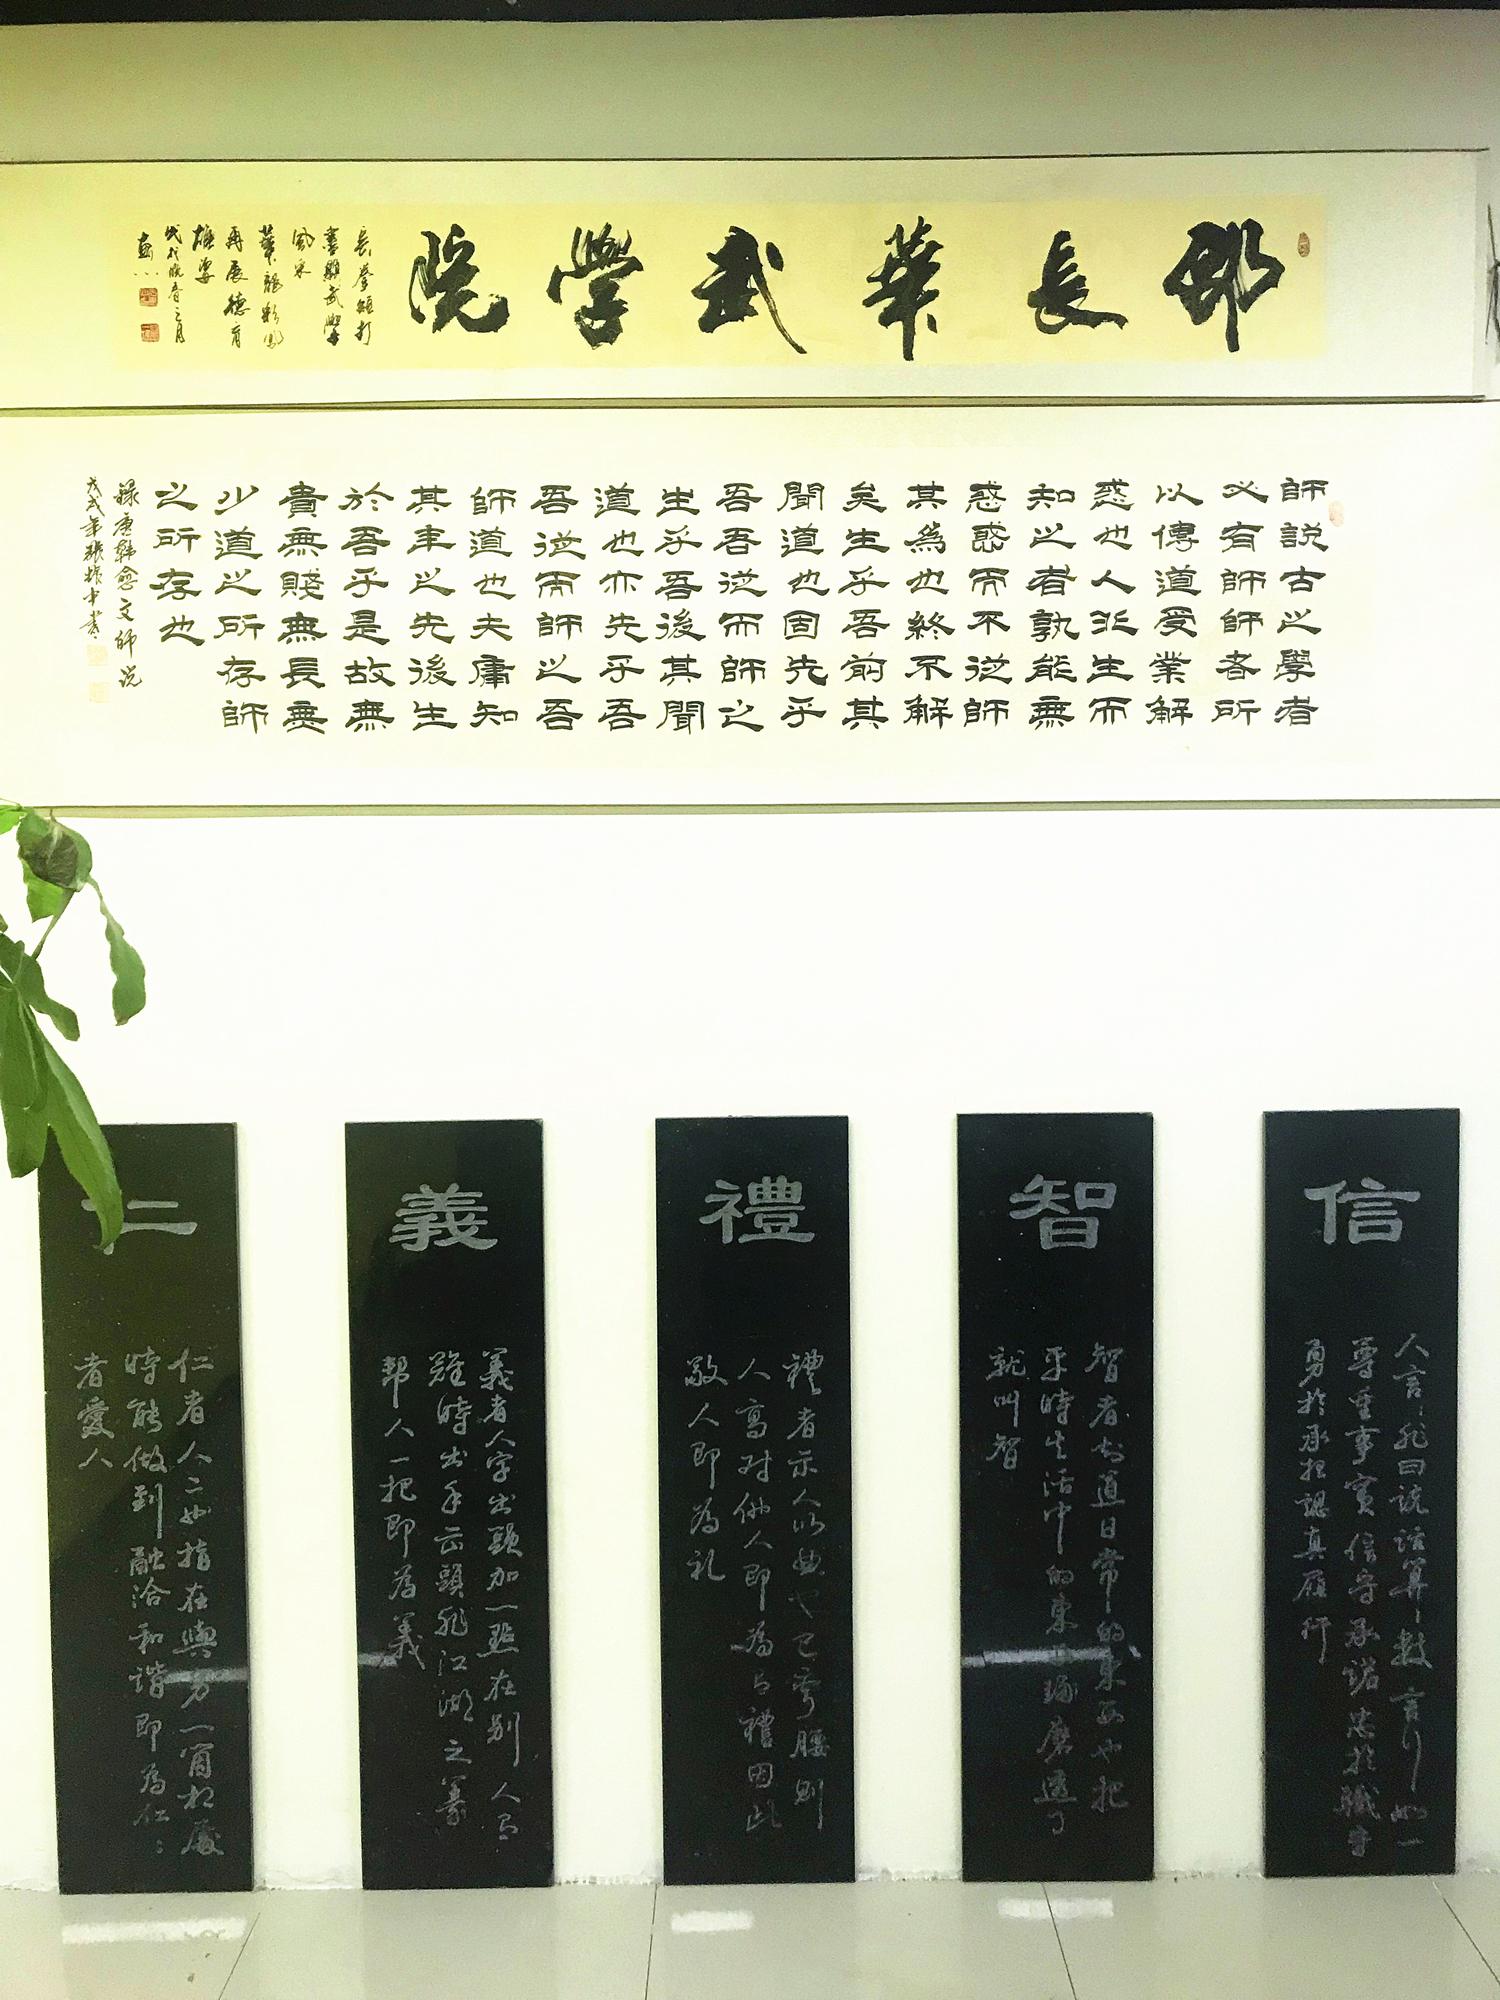 邵長華武學院
長拳短打
書顯武學
風采
華龍彩鳳
再展德育
雄姿
戊戌晚春三月
師說古之學者
必有師師者所
以傳道受業解
惑也人非生而
知之者孰能無
惑惑而不從師
其為也終不解
矣生乎吾前其
聞道也固先乎
吾吾從而師之
生乎吾後其聞
道也亦先乎吾
吾從而師之吾
師道也夫庸知
其年之先後生
於吾乎是故無
貴無賤無長無
少道之所存師
之所存也
錄唐韓愈文師说
戊戌年張振中書
信
人言兆曰說話算數言行如一
尊重事實信守承諾忠於職守
勇於承担認真履行
智
智者知道日常的東西也把
平時生活中的東西琢磨透了
就叫智
禮
禮者示人以曲也已彎腰則
人高对他人即為有禮因此
敬人即為礼
義
義者人字出頭加一點在别人有
難時出手出頭兆江湖之義
帮人一把即為義
仁
仁者人二也指在與另一箇相處
時能做到融洽和谐即為仁
者愛人